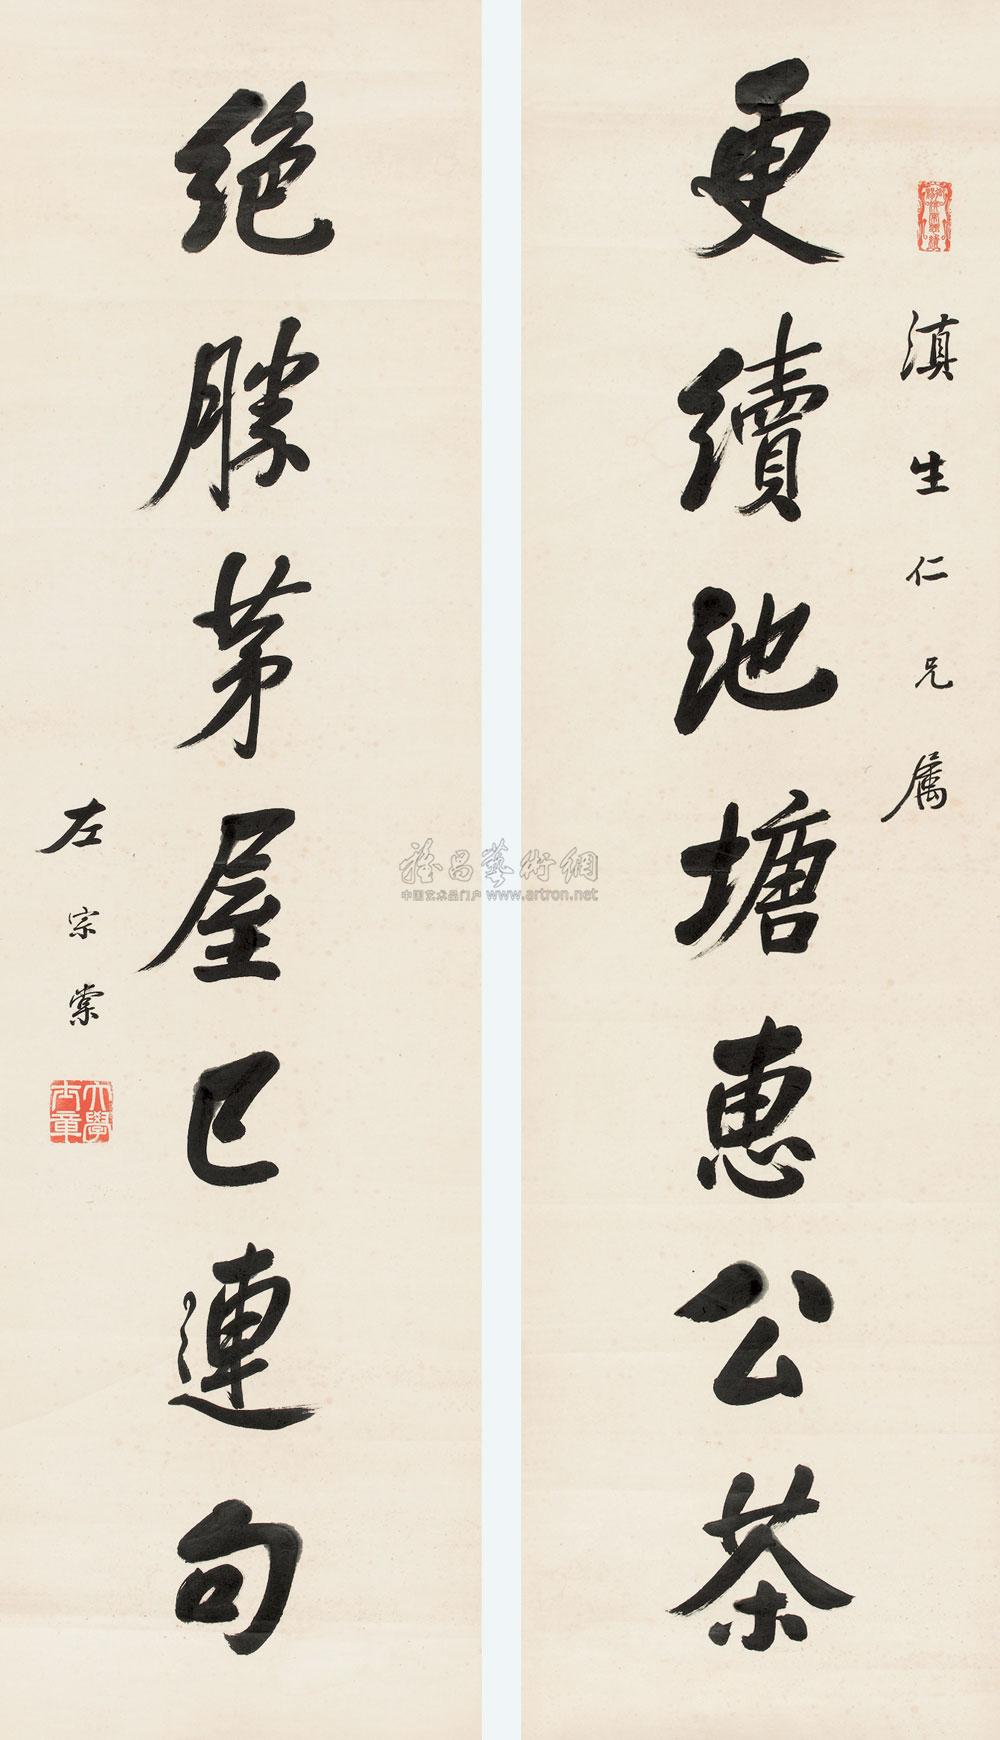 滇生仁兄属
更續池塘惠公茶
絕勝茅屋已連句
左宗棠
大學士章
雅昌藝術網
中国艺术品门户 www.artron.net